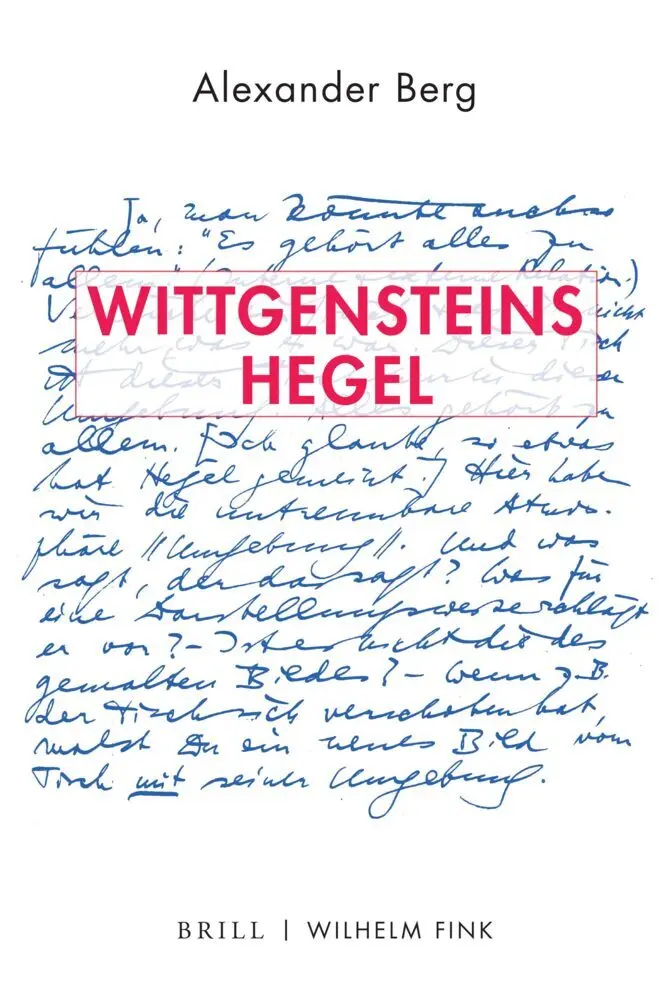 Alexander Berg
Ja, man könnte auch so
fühlen: "Es gehört alles zu
allem" (interne & externe Relation.)
WITTGENSTEINS
HEGEL
nicht
mehr, was es war. Dieser Tisch
ist dieser Tisch nur in dieser
Umgebung. Alles gehört zu
allem. [Ich glaube, so etwas
hat Hegel gemeint.] Hier haben
wir die untrennbare Atmos-
phäre //Umgebung//. Und was
sagt, der das sagt? Was für
eine Darstellungsweise schlägt
er vor? – Ist es nicht die des
gemalten Bildes? – Wenn z.B.
der Tisch sich verschoben hat,
malst Du ein neues Bild vom
Tisch mit seiner Umgebung.
BRILL | WILHELM FINK